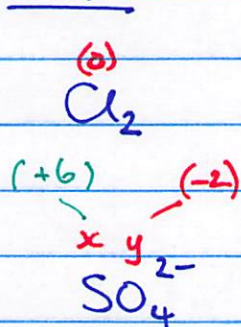 (0)
Cl₂
(+6) (-2)
x y
SO₄²⁻